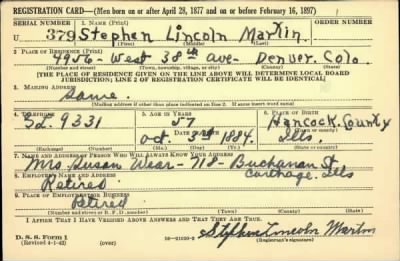 REGISTRATION CARD—(Men born on or after April 28, 1877 and on or before February 16, 1897)
SERIAL NUMBER 1. NAME (Print) ORDER NUMBER
U 379 Stephen Lincoln Martin
(First) (Middle) (Last)
2. PLACE OF RESIDENCE (Print)
4956 - West 38th ave - Denver. Colo.
(Number and street) (Town, township, village, or city) (County) (State)
[THE PLACE OF RESIDENCE GIVEN ON THE LINE ABOVE WILL DETERMINE LOCAL BOARD
JURISDICTION; LINE 2 OF REGISTRATION CERTIFICATE WILL BE IDENTICAL]
3. MAILING ADDRESS
Same.
[Mailing address if other than place indicated on line 2. If same insert word same]
4. TELEPHONE 5. AGE IN YEARS 6. PLACE OF BIRTH
57 Hancock. County
Gl. 9331 DATE OF BIRTH
Oct. 3rd 1884. Ills
(Mo.) (Day) (Yr.) (State or country)
7. NAME AND ADDRESS OF PERSON WHO WILL ALWAYS KNOW YOUR ADDRESS
Mrs. Susan - Buchanan St Carthage. Ills
8. EMPLOYER'S NAME AND ADDRESS
Retired
9. PLACE OF EMPLOYMENT OR BUSINESS
Retired
(Number and street or R. F. D. number) (Town) (County) (State)
I AFFIRM THAT I HAVE VERIFIED ABOVE ANSWERS AND THAT THEY ARE TRUE.
D. S. S. Form 1
(Revised 4-1-42) (over) 16—21630-2 Stephen Lincoln Martin
(Registrant's signature)